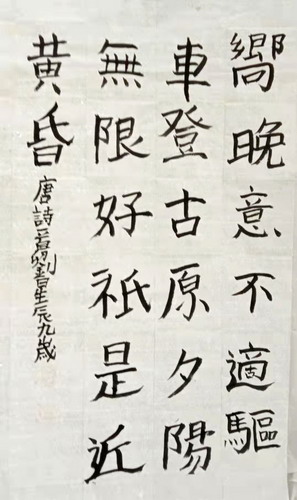 嚮晚意不適驅
車登古原夕陽
無限好祇是近
黄昏
唐詩 劉 生辰九歲